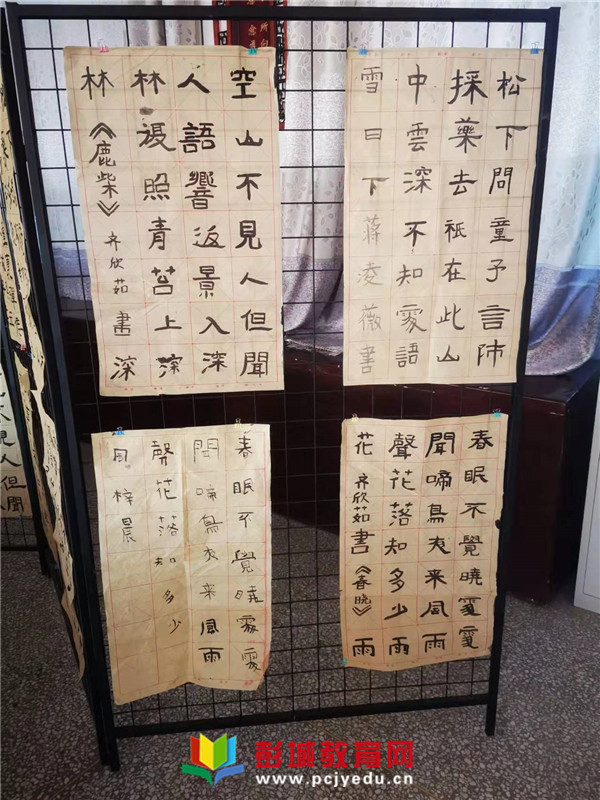 空山不見人但聞
人語響返景入深
林復照青苔上深
林《鹿柴》齐欣茹書深
松下問童子言師
採藥去祇在此山
中雲深不知處語
雪日下蒋凌薇書
春眠不覺曉處處
聞啼鳥夜来風雨
聲花落知多少
周梓晨
春眠不覺曉處處
聞啼鳥夜来風雨
聲花落知多少雨
花齐欣茹書《春晓》雨
見人但聞
彭城教育网
www.pcjyedu.cn